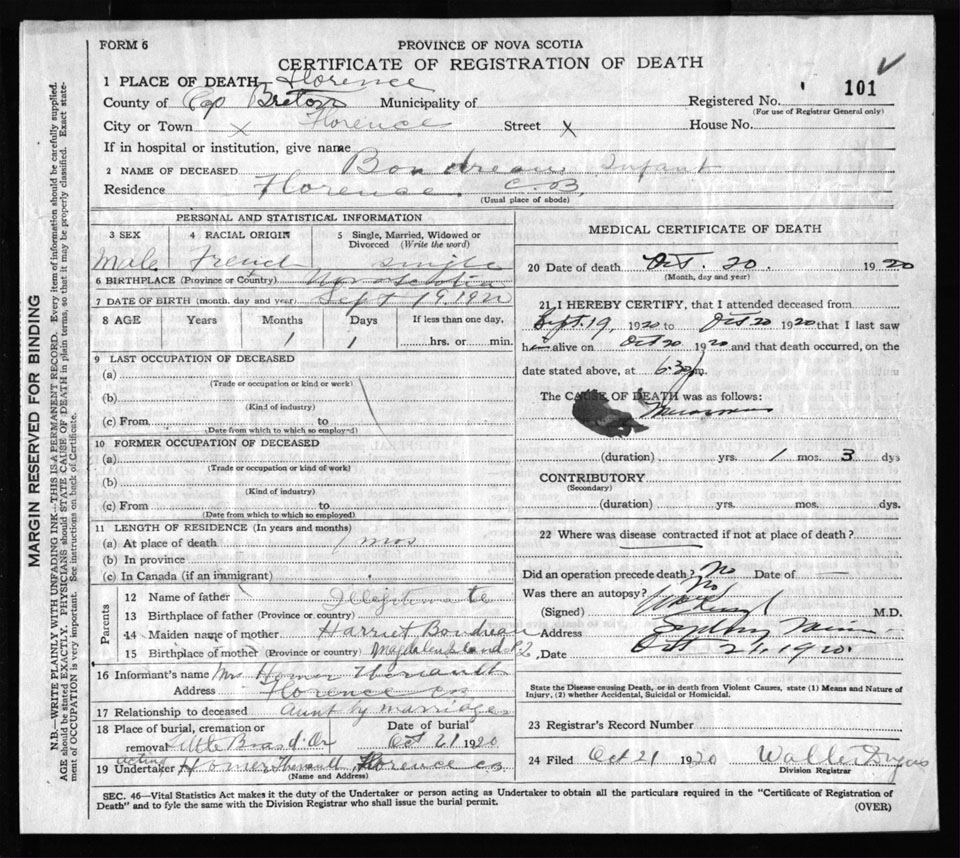 FORM 6
PROVINCE OF NOVA SCOTIA
CERTIFICATE OF REGISTRATION OF DEATH
101
1 PLACE OF DEATH Florence
County of Cap Breton Municipality of Registered No.
(For use of Registrar General only)
City or Town x Florence Street x House No.
If in hospital or institution, give name
2 NAME OF DECEASED Boudreau Infant
Residence Florence C.B.
(Usual place of abode)
PERSONAL AND STATISTICAL INFORMATION
3 SEX 4 RACIAL ORIGIN 5 Single, Married, Widowed or
Divorced (Write the word)
Male French single
6 BIRTHPLACE (Province or Country) Nova Scotia
7 DATE OF BIRTH (month, day and year) Sept 19, 1920
8 AGE Years Months Days If less than one day,
1 1 hrs. or min.
9 LAST OCCUPATION OF DECEASED
(a)
(Trade or occupation or kind or work)
(b)
(Kind of industry)
(c) From to
(Date from which to which so employed)
10 FORMER OCCUPATION OF DECEASED
(a)
(Trade or occupation or kind of work)
(b)
(Kind of industry)
(c) From to
(Date from which to which so employed)
11 LENGTH OF RESIDENCE (In years and months)
(a) At place of death 1 mos
(b) In province
(c) In Canada (if an immigrant)
Parents
12 Name of father Illegitimate
13 Birthplace of father (Province or country)
14 Maiden name of mother Harriet Boudreau
15 Birthplace of mother (Province or country) Magdalen Island
16 Informant's name Mrs Homer Theriault
Address Florence CB
17 Relationship to deceased Aunt by marriage
18 Place of burial, cremation or Date of burial
removal Little Bras d'Or Oct 21 1920
acting
19 Undertaker Homer Theriault, Florence CB
(Name and Address)
MEDICAL CERTIFICATE OF DEATH
20 Date of death Oct. 20. 1920
(Month, day and year)
21 I HEREBY CERTIFY, that I attended deceased from
Sept. 19, 1920 to Oct 20 1920 that I last saw
him alive on Oct 20 1920 and that death occurred, on the
date stated above, at 6.30 m.
The CAUSE OF DEATH was as follows:
Marasmus
(duration) yrs. 1 mos. 3 dys
CONTRIBUTORY
(Secondary)
(duration) yrs. mos. dys.
22 Where was disease contracted if not at place of death?
Did an operation precede death? No Date of —
Was there an autopsy? No
(Signed) M.D.
Address Sydney Mines
Date Oct 21, 1920.
State the Disease causing Death, or in death from Violent Causes, state (1) Means and Nature of
Injury, (2) whether Accidental, Suicidal or Homicidal.
23 Registrar's Record Number
24 Filed Oct 21 1920 Walter
Division Registrar
SEC. 46—Vital Statistics Act makes it the duty of the Undertaker or person acting as Undertaker to obtain all the particulars required in the "Certificate of Registration of
Death" and to fyle the same with the Division Registrar who shall issue the burial permit.
(OVER)
MARGIN RESERVED FOR BINDING
N.B.—WRITE PLAINLY WITH UNFADING INK—THIS IS A PERMANENT RECORD. Every item of information should be carefully supplied.
AGE should be stated EXACTLY. PHYSICIANS should STATE CAUSE OF DEATH in plain terms, so that it may be properly classified. Exact state-
ment of OCCUPATION is very important. See instructions on back of Certificate.